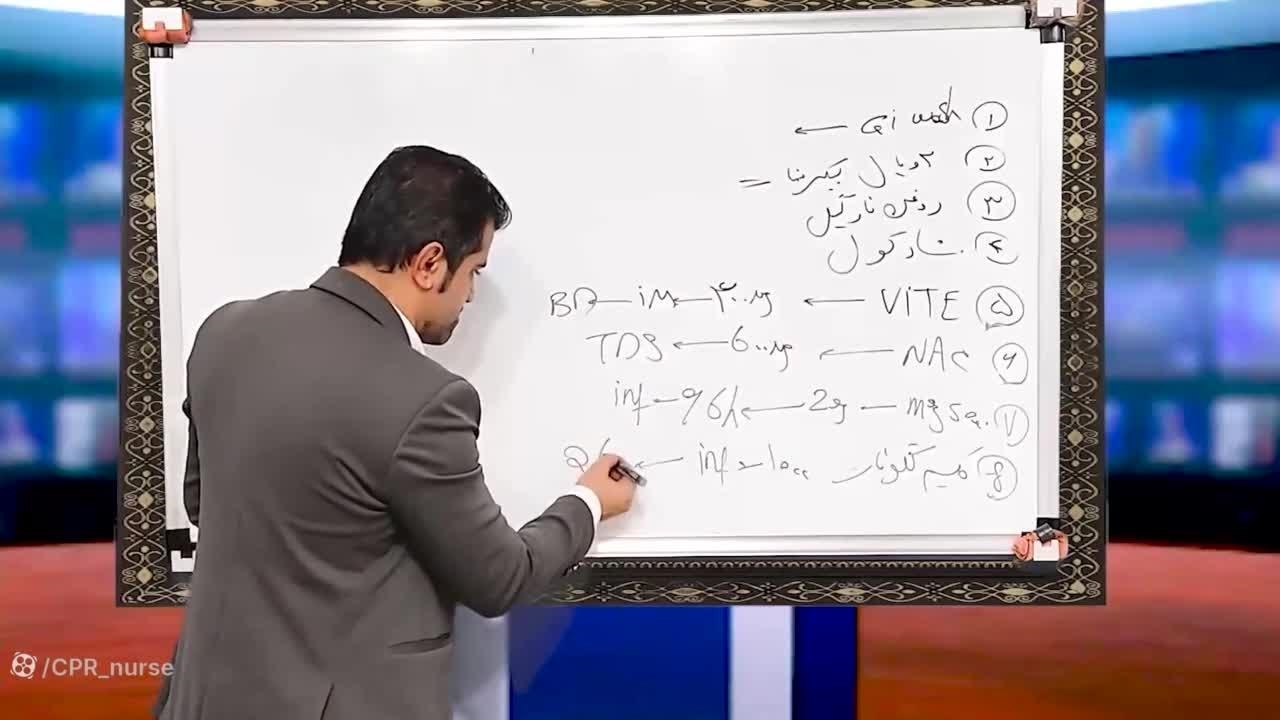 ① Gi wash ←
② ۲ ویال بیکربنات =
③ روغن نارگیل
④ شارکول
⑤ VITE ← ۴۰۰mg ← im ← BD
⑥ NAC ← 600mg ← TDS
⑦ mgSo4 ← 2g ← q6h ← inf
⑧ کلسیم گلوکونات 10cc ← inf ←
/CPR_nurse